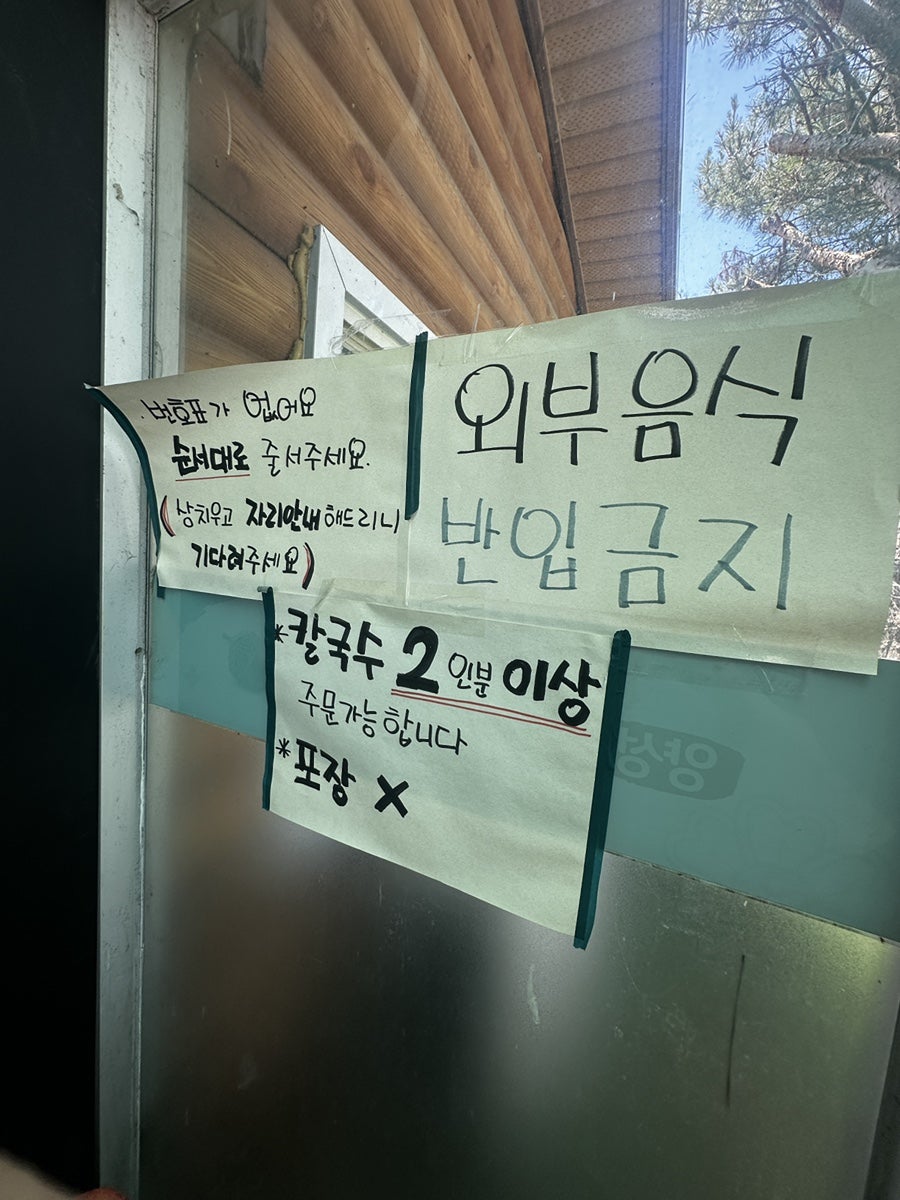 . 번호표가 없어요
순서대로 줄서주세요.
(상치우고 자리안내해드리니
기다려주세요)
외부음식
반입금지
*칼국수 2인분 이상
주문가능합니다
*포장 X